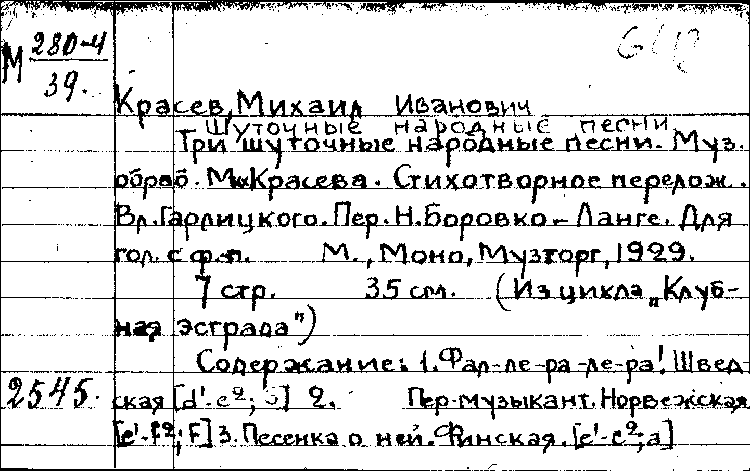 М 280-4
39.
Красев, Михаил Иванович
Шуточные народные песни
Три шуточные народные песни. Муз.
обраб. Мих Красева. Стихотворное перелож.
Вл. Гарлицкого. Пер. Н. Боровко-Ланге. Для
гол. с ф.-п. М., Моно, Музторг, 1929.
7 стр. 35 см. (Из цикла „Клуб-
ная эстрада")
Содержание: 1. Фал-ле-ра-ле-ра! Швед
2545. ская [d¹-e²; ] 2. Пер-музыкант. Норвежская
[e¹-f²; F] 3. Песенка о ней. Финская. [e¹-e²; a]